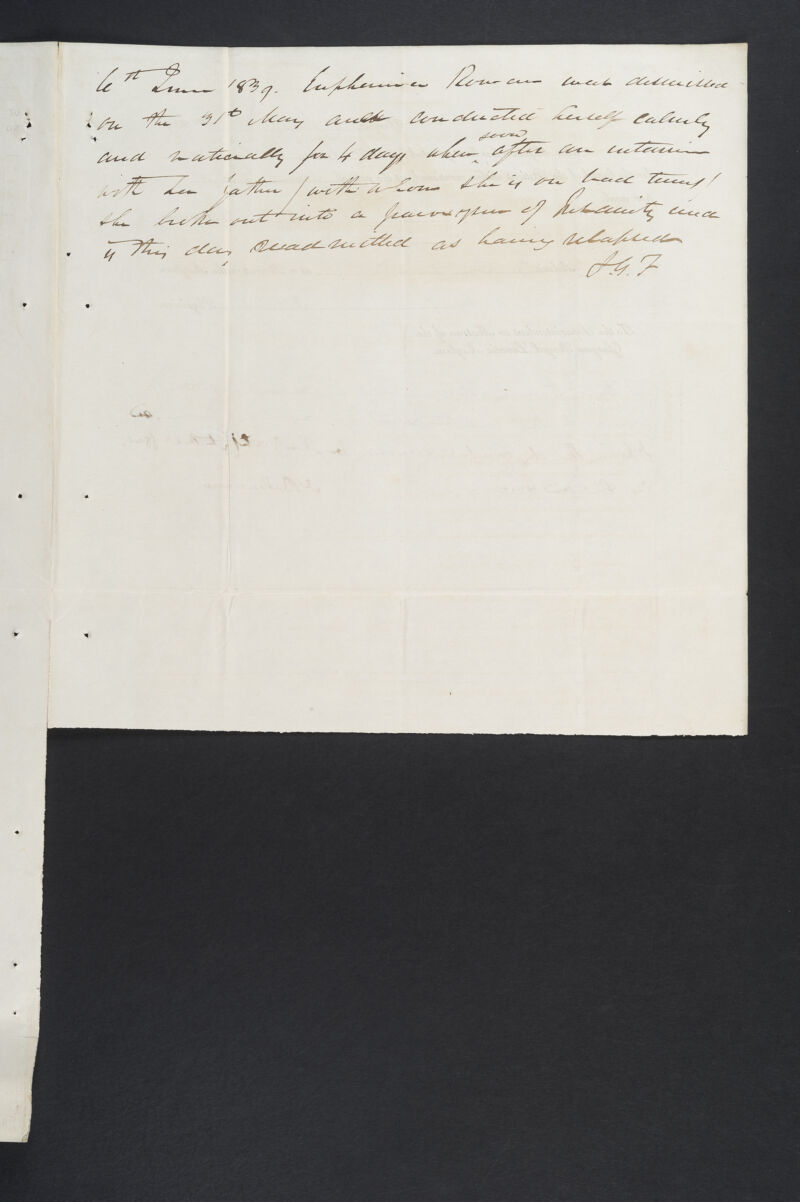 6th June 1839. Euphemia Rowan was dismissed
on the 31st May and conducted herself calmly
and rationally for 4 days when soon after an interview
with her father (with whom she is on bad terms)
she broke out into a paroxysm of Insanity and
is this day readmitted as having relapsed